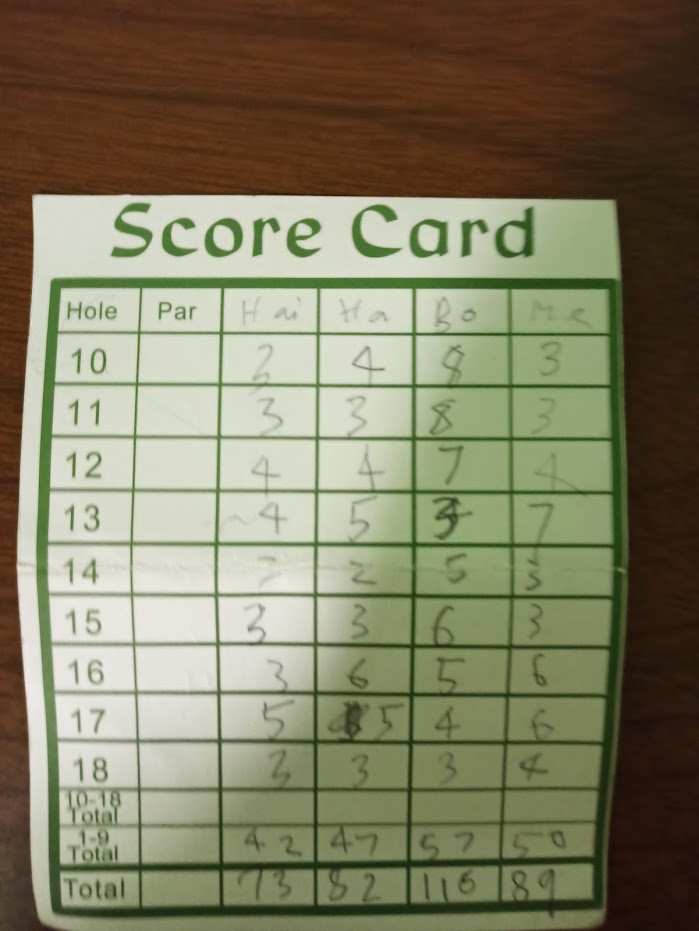 Score Card
Hole Par Hai Ha Bo Me
10 3 4 8 3
11 3 3 8 3
12 4 4 7 4
13 4 5 7
14 2 5 3
15 3 3 6 3
16 3 6 5 6
17 5 5 4 6
18 3 3 3 4
10-18
Total
1-9
Total 42 47 57 50
Total 73 82 116 89